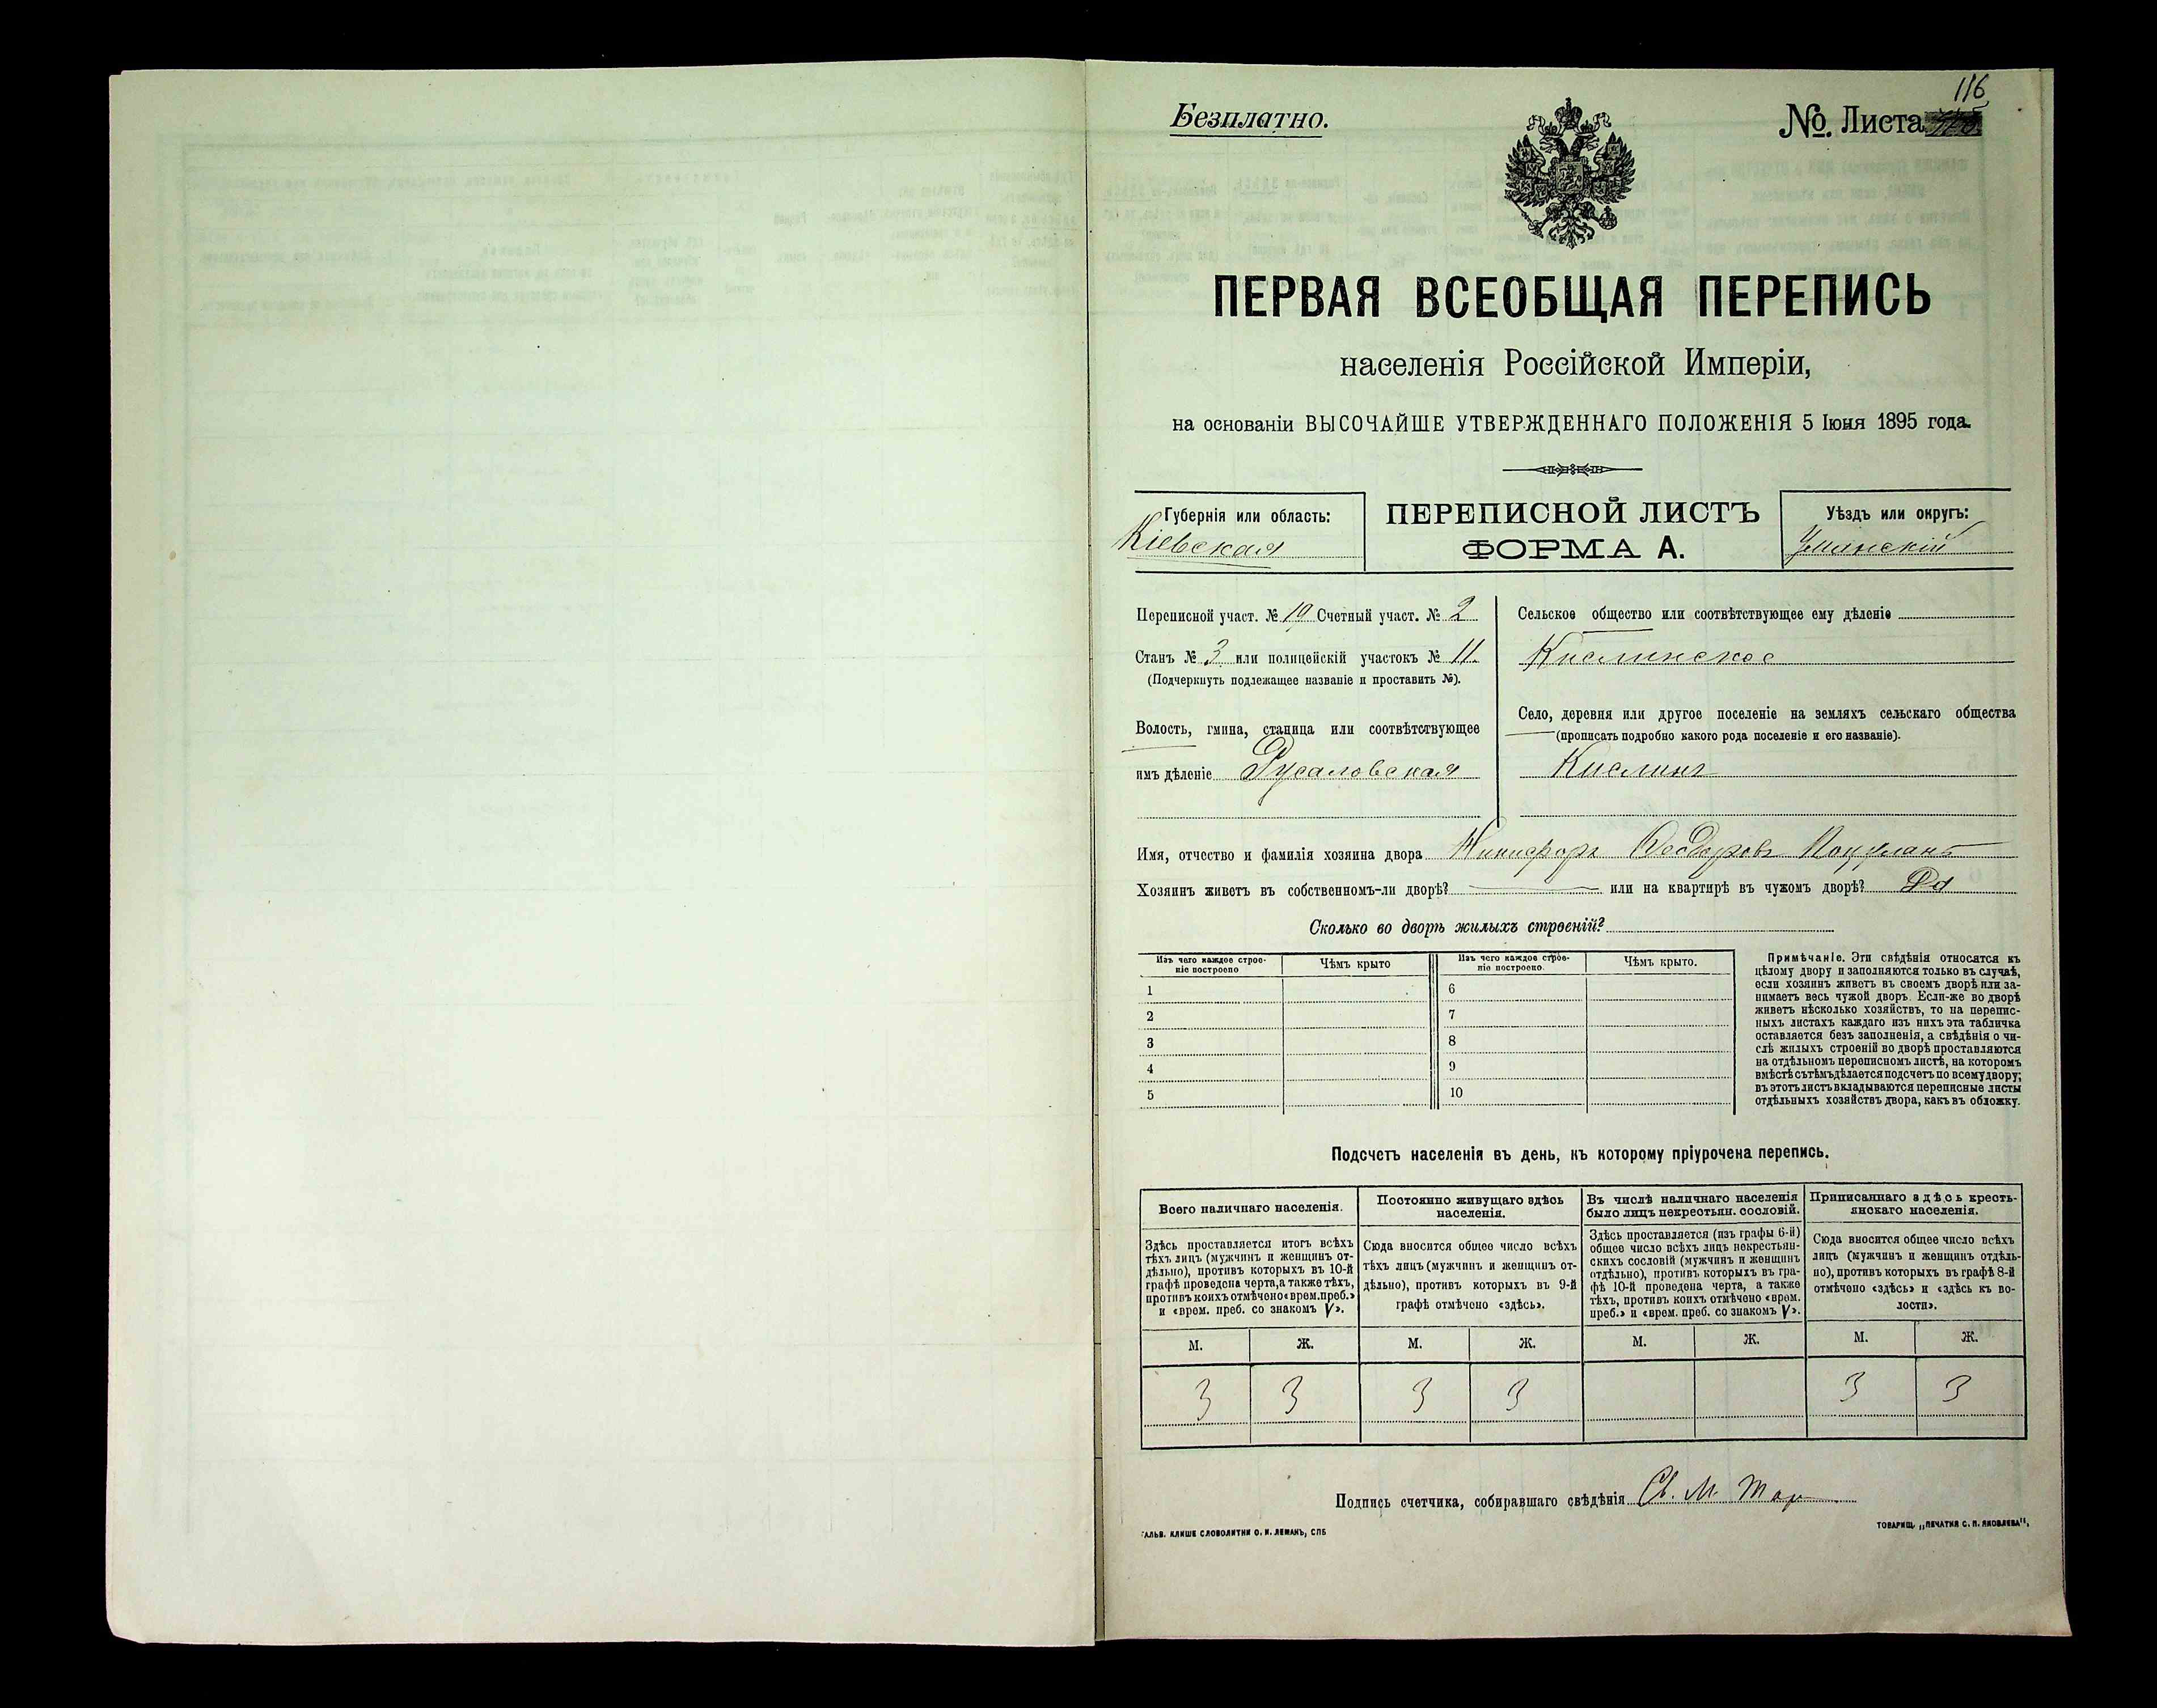 116
Безплатно.
№. Листа
ПЕРВАЯ ВСЕОБЩАЯ ПЕРЕПИСЬ
населенія Россійской Имперіи,
на основаніи ВЫСОЧАЙШЕ УТВЕРЖДЕННАГО ПОЛОЖЕНІЯ 5 Іюня 1895 года.
Губернія или область:
Кіевская
ПЕРЕПИСНОЙ ЛИСТЪ
ФОРМА А.
Уѣздъ или округъ:
Уманскій
Переписной участ. № 19 Счетный участ. № 2
Станъ № 3 или полицейскій участокъ № 11.
(Подчеркнуть подлежащее названіе и проставить №).
Волость, гмина, станица или соотвѣтствующее
имъ дѣленіе Русаловская
Сельское общество или соотвѣтствующее ему дѣленіе
Кислинское
Село, деревня или другое поселеніе на земляхъ сельскаго общества
(прописать подробно какого рода поселеніе и его названіе).
Кислинъ
Имя, отчество и фамилія хозяина двора Никифоръ Феодоровъ
Хозяинъ живетъ въ собственномъ-ли дворѣ? или на квартирѣ въ чужомъ дворѣ? Да
Сколько во дворѣ жилыхъ строеній?
Изъ чего каждое строе-
ніе построено
Чѣмъ крыто
Изъ чего каждое строе-
ніе построено.
Чѣмъ крыто.
1
6
2
7
3
8
4
9
5
10
Примѣчаніе. Эти свѣдѣнія относятся къ
цѣлому двору и заполняются только въ случаѣ,
если хозяинъ живетъ въ своемъ дворѣ или за-
нимаетъ весь чужой дворъ. Если-же во дворѣ
живетъ нѣсколько хозяйствъ, то на перепис-
ныхъ листахъ каждаго изъ нихъ эта табличка
оставляется безъ заполненія, а свѣдѣнія о чи-
слѣ жилыхъ строеній во дворѣ проставляются
на отдѣльномъ переписномъ листѣ, на которомъ
вмѣстѣ съ тѣмъ дѣлается подсчетъ по всему двору;
въ этотъ листъ вкладываются переписные листы
отдѣльныхъ хозяйствъ двора, какъ въ обложку.
Подсчетъ населенія въ день, къ которому пріурочена перепись.
Всего наличнаго населенія.
Здѣсь проставляется итогъ всѣхъ
тѣхъ лицъ (мужчинъ и женщинъ от-
дѣльно), противъ которыхъ въ 10-й
графѣ проведена черта, а также тѣхъ,
противъ коихъ отмѣчено «врем. преб.»
и «врем. преб. со знакомъ V».
Постоянно живущаго здѣсь
населенія.
Сюда вносится общее число всѣхъ
тѣхъ лицъ (мужчинъ и женщинъ от-
дѣльно), противъ которыхъ въ 9-й
графѣ отмѣчено «здѣсь».
Въ числѣ наличнаго населенія
было лицъ некрестьян. сословій.
Здѣсь проставляется (изъ графы 6-й)
общее число всѣхъ лицъ некрестьян-
скихъ сословій (мужчинъ и женщинъ
отдѣльно), противъ которыхъ въ гра-
фѣ 10-й проведена черта, а также
тѣхъ, противъ коихъ отмѣчено «врем.
преб.» и «врем. преб. со знакомъ V».
Приписаннаго здѣсь кресть-
янскаго населенія.
Сюда вносится общее число всѣхъ
лицъ (мужчинъ и женщинъ отдѣль-
но), противъ которыхъ въ графѣ 8-й
отмѣчено «здѣсь» и «здѣсь къ во-
лости».
М. Ж. М. Ж. М. Ж. М. Ж.
3 3 3 3 3 3
Подпись счетчика, собиравшаго свѣдѣнія Св. М.
ГАЛЬВ. КЛИШЕ СЛОВОЛИТНИ О. И. ЛЕМАНЪ, СПБ
ТОВАРИЩ. „ПЕЧАТНЯ С. П. ЯКОВЛЕВА“,